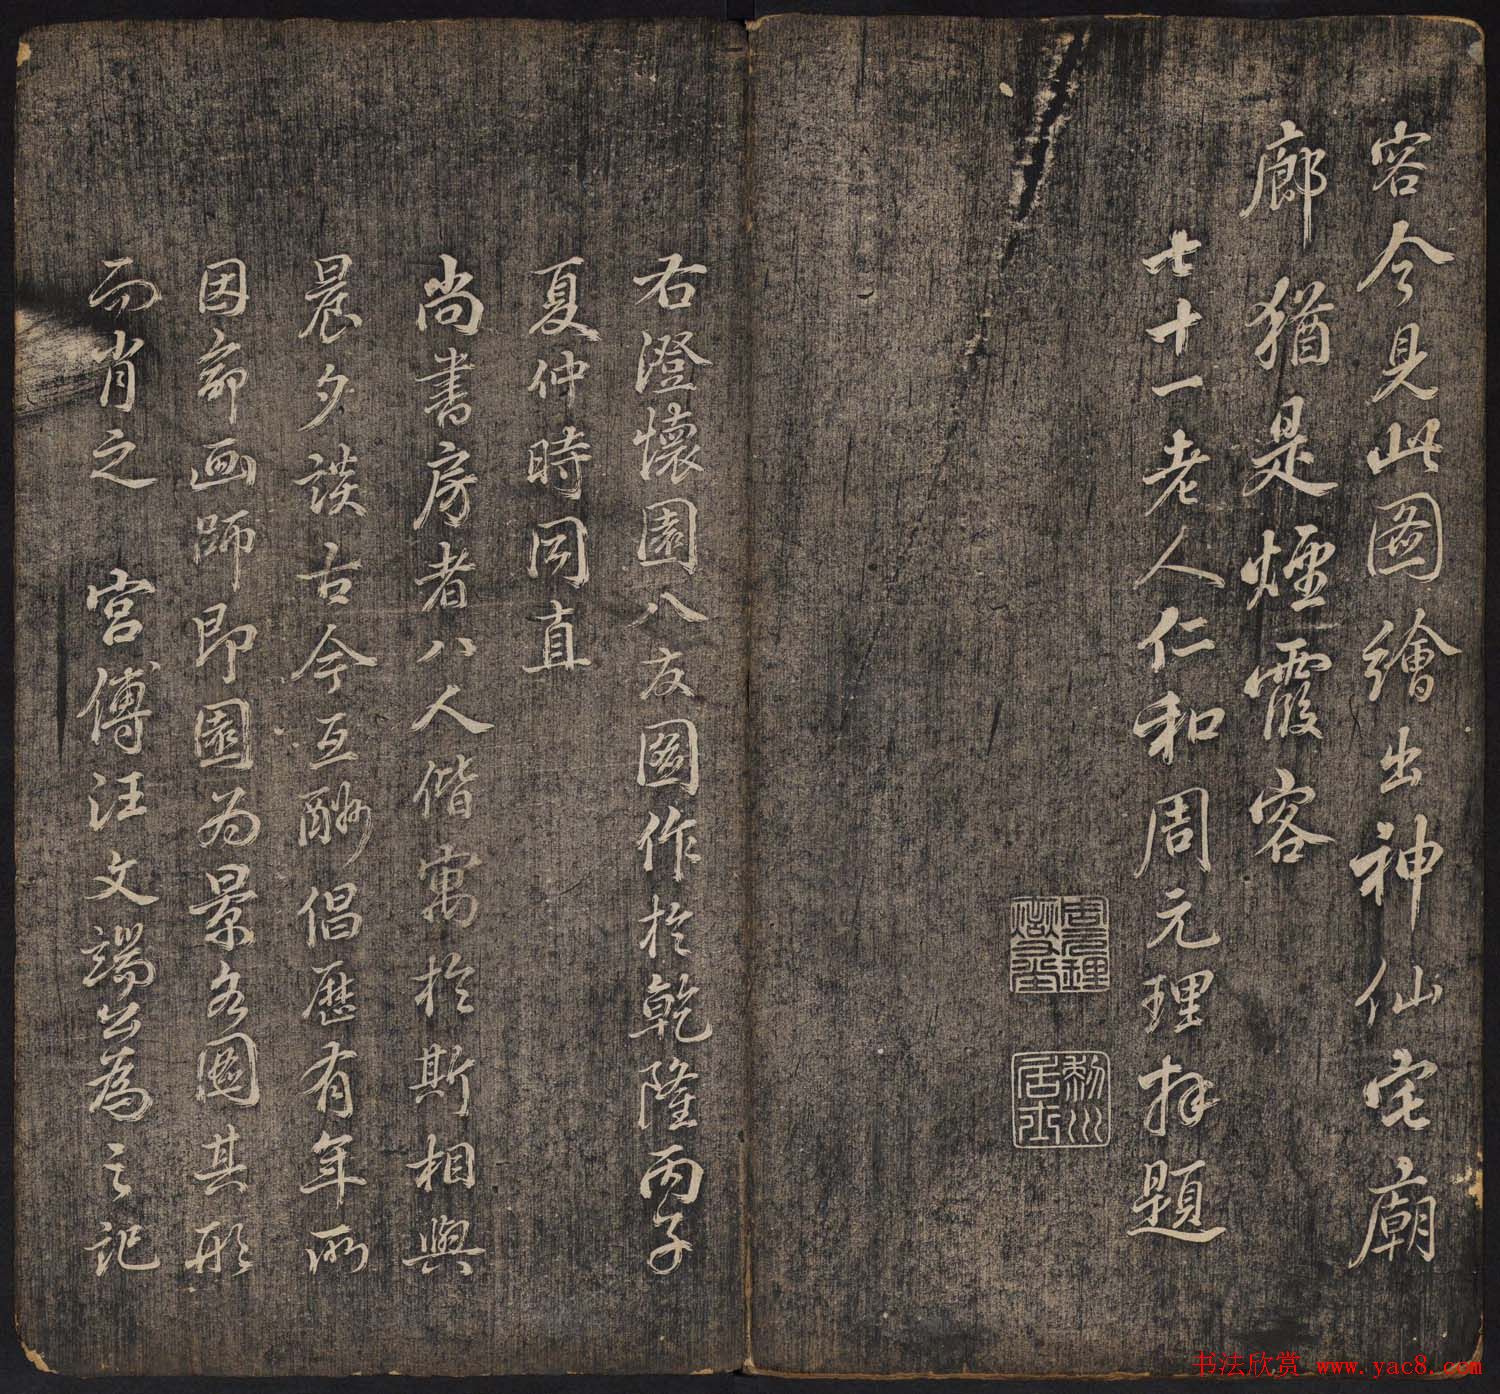 容今見此圖繪出神仙宅廟
廊猶是煙霞客
七十一老人仁和周元理拜題
右澄懷園八友圖作於乾隆丙子
夏仲時同直
尚書房者八人偕寓於斯相與
晨夕談古今互酬倡歷有年所
因命画師即園为景各圖其形
而肖之 宮傅汪文端公為之記
书法欣赏 www.yac8.com